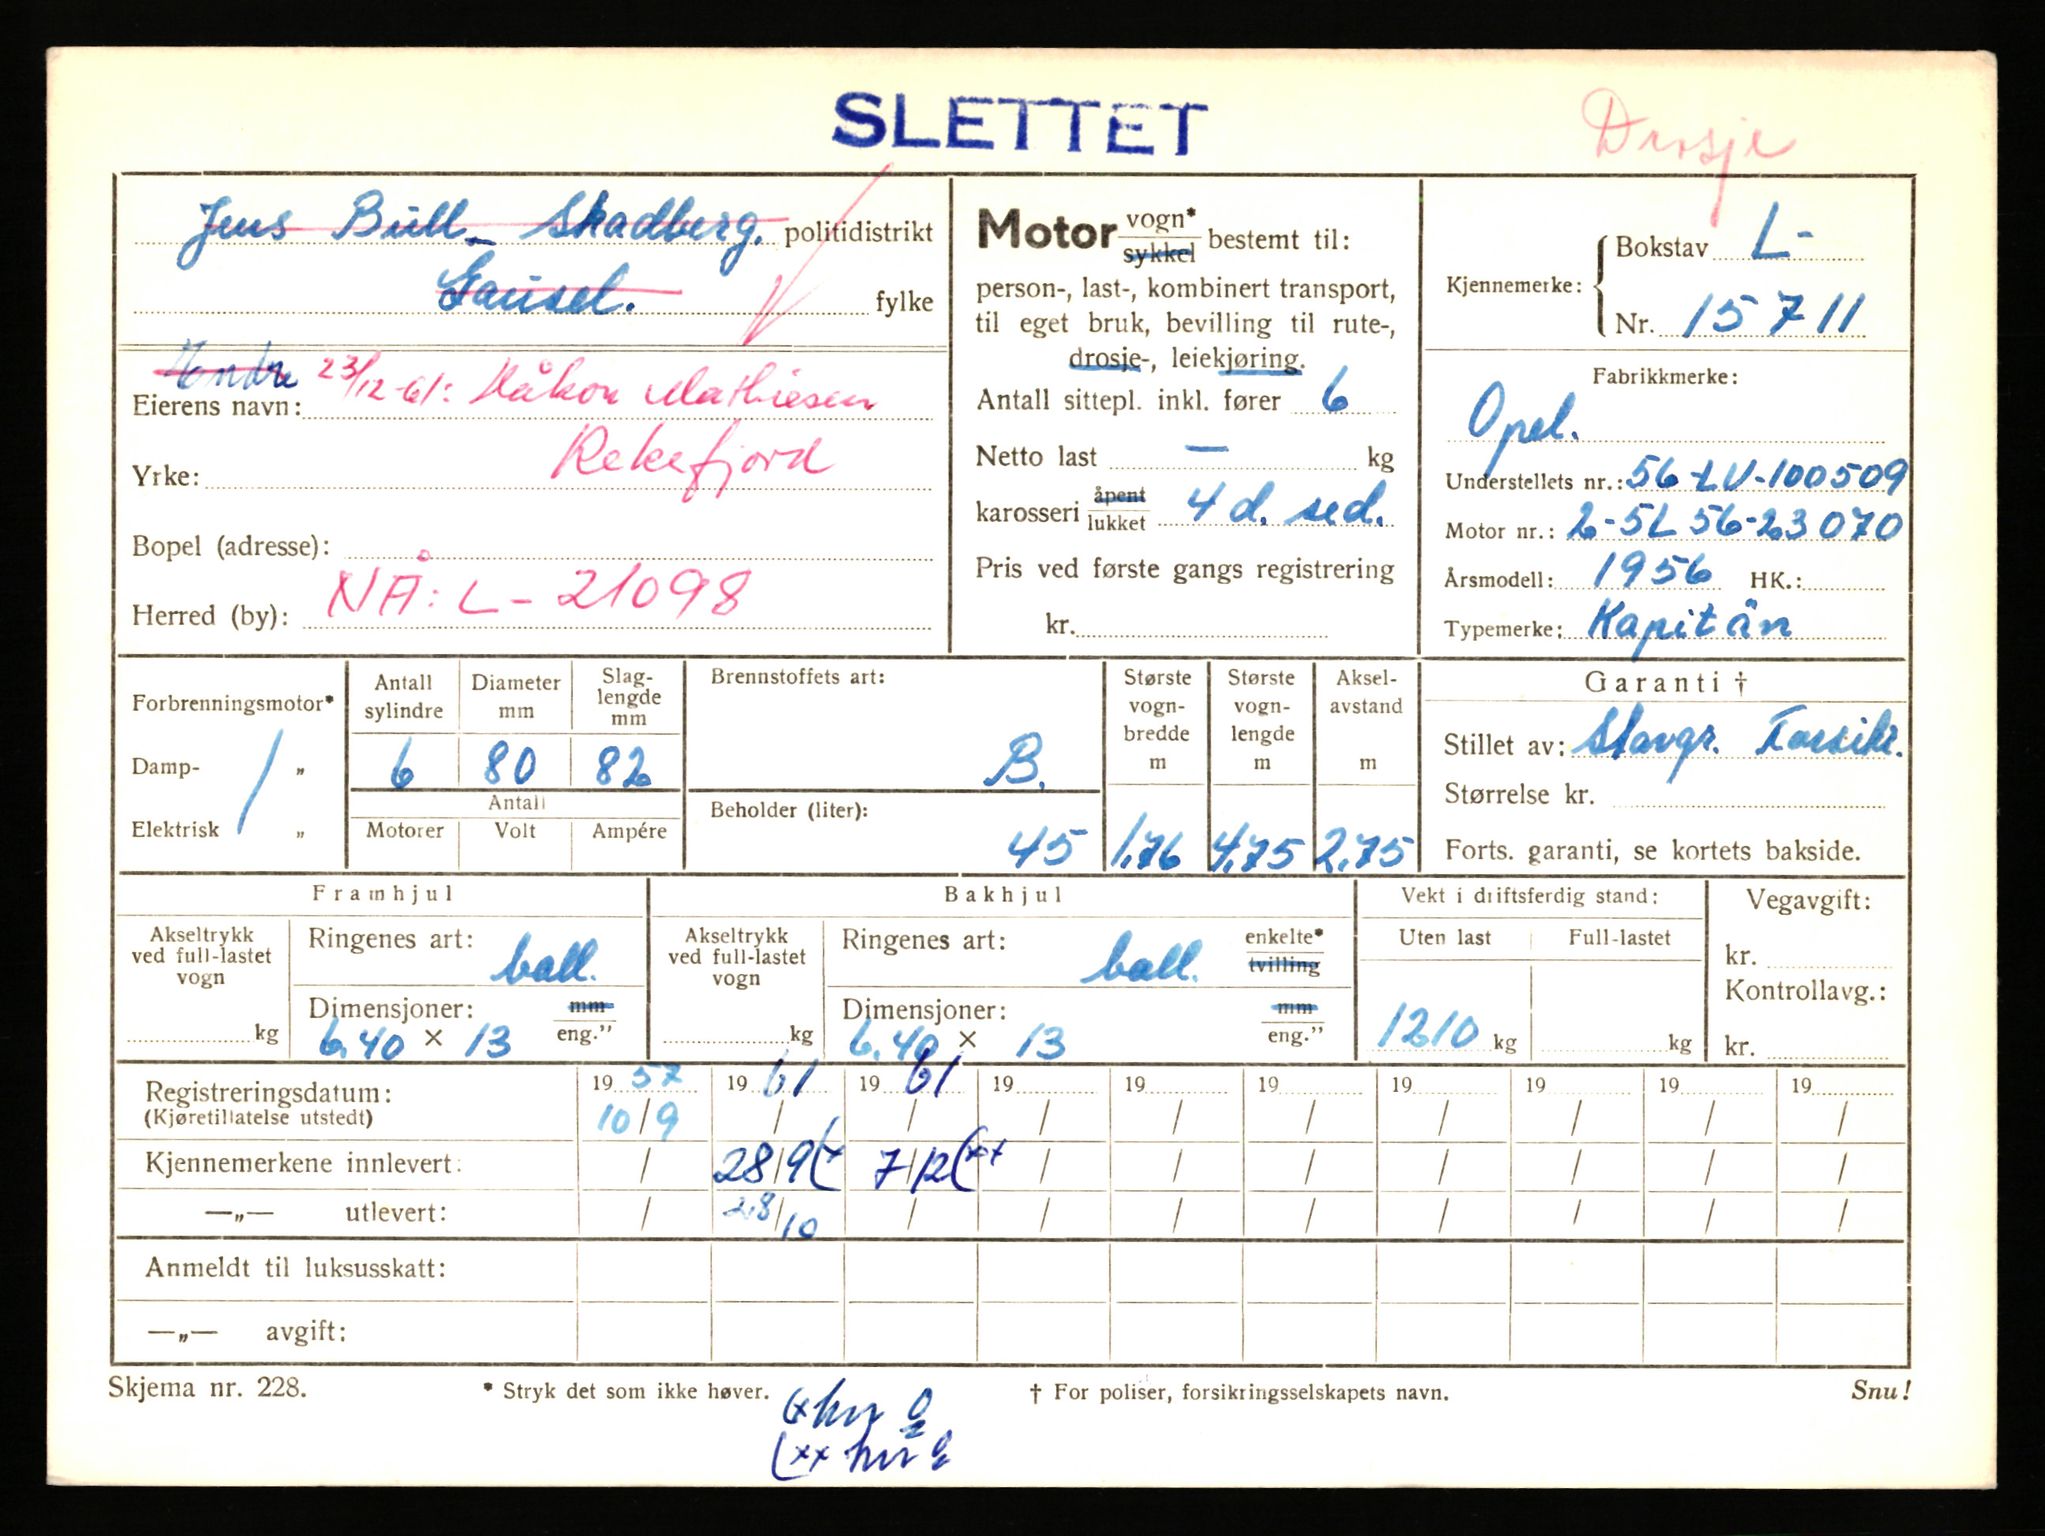 SLETTET
Drosje
Jens Bull-Skadberg. politidistrikt
Gausel. fylke
23/12-61: Håkon Mathiesen
Eierens navn:
Rekefjord
Yrke:
Bopel (adresse):
NÅ: L-21098
Herred (by):
Motor vogn* sykkel bestemt til:
person-, last-, kombinert transport,
til eget bruk, bevilling til rute-,
drosje-, leiekjøring.
Antall sittepl. inkl. fører 6
Netto last — kg
karosseri åpent lukket 4 d. sed.
Pris ved første gangs registrering
kr.
Kjennemerke: Bokstav L-
Nr. 15711
Fabrikkmerke:
Opel.
Understellets nr.: 56-LV-100509
Motor nr.: 2-5L 56-23070
Årsmodell: 1956 HK.:
Typemerke: Kapitän
Forbrenningsmotor*
Damp- „
Elektrisk „
Antall sylindre
Diameter mm
Slaglengde mm
6 80 82
Antall
Motorer Volt Ampére
Brennstoffets art:
B.
Beholder (liter):
45
Største vogn-bredde m
1,76
Største vogn-lengde m
4,75
Aksel-avstand m
2,75
Garanti †
Stillet av: Stavgr. Forsikr.
Størrelse kr.
Forts. garanti, se kortets bakside.
Framhjul
Akseltrykk
ved full-lastet
vogn
kg
Ringenes art: ball.
Dimensjoner: mm
6.40 × 13 eng.”
Bakhjul
Akseltrykk
ved full-lastet
vogn
kg
Ringenes art: ball. enkelte* tvilling
Dimensjoner: mm
6.40 × 13 eng.”
Vekt i driftsferdig stand:
Uten last Full-lastet
1210 kg kg
Vegavgift:
kr.
Kontrollavg.:
kr.
Registreringsdatum: 19 57 19 61 19 61 19 19 19 19 19 19 19
(Kjøretillatelse utstedt) 10/9 / / / / / / / / /
Kjennemerkene innlevert: / 28/9 (x 7/12 (xx / / / / / / /
—„— utlevert: / 28/10 / / / / / / / /
Anmeldt til luksusskatt:
—„— avgift:
Skjema nr. 228.
* Stryk det som ikke høver.
† For poliser, forsikringsselskapets navn.
Snu!
(x
(xx